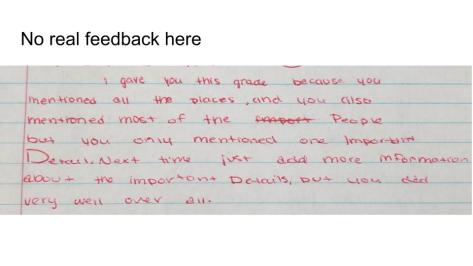 No real feedback here
i gave you this grade because you
mentioned all the places, and you also
mentioned most of the People
but you only mentioned one Important
Detail. Next time just add more information
about the important Details, but you did
very well over all.